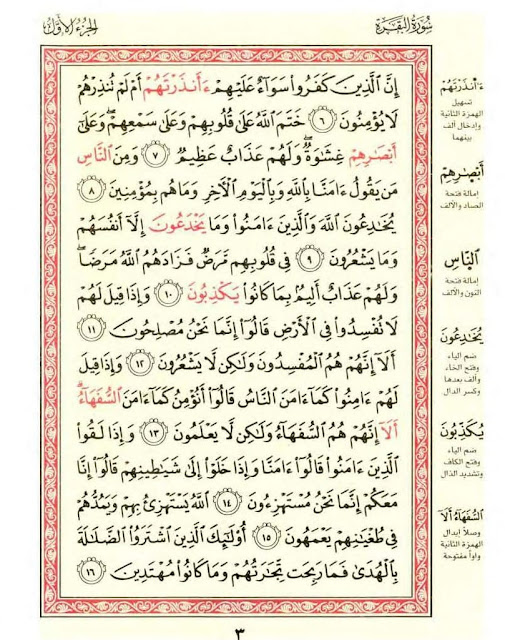 سُورَةُ البَقَرَةِ
الجُزءُ الأوَّلُ
إِنَّ ٱلَّذِينَ كَفَرُوا۟ سَوَآءٌ عَلَيْهِمْ ءَأَنذَرْتَهُمْ أَمْ لَمْ تُنذِرْهُمْ
لَا يُؤْمِنُونَ ٦ خَتَمَ ٱللَّهُ عَلَىٰ قُلُوبِهِمْ وَعَلَىٰ سَمْعِهِمْ ۖ وَعَلَىٰٓ
أَبْصَٰرِهِمْ غِشَٰوَةٌ ۖ وَلَهُمْ عَذَابٌ عَظِيمٌ ٧ وَمِنَ ٱلنَّاسِ
مَن يَقُولُ ءَامَنَّا بِٱللَّهِ وَبِٱلْيَوْمِ ٱلْءَاخِرِ وَمَا هُم بِمُؤْمِنِينَ ٨
يُخَٰدِعُونَ ٱللَّهَ وَٱلَّذِينَ ءَامَنُوا۟ وَمَا يَخْدَعُونَ إِلَّآ أَنفُسَهُمْ
وَمَا يَشْعُرُونَ ٩ فِى قُلُوبِهِم مَّرَضٌ فَزَادَهُمُ ٱللَّهُ مَرَضًا ۖ
وَلَهُمْ عَذَابٌ أَلِيمٌۢ بِمَا كَانُوا۟ يَكْذِبُونَ ١٠ وَإِذَا قِيلَ لَهُمْ
لَا تُفْسِدُوا۟ فِى ٱلْأَرْضِ قَالُوٓا۟ إِنَّمَا نَحْنُ مُصْلِحُونَ ١١
أَلَآ إِنَّهُمْ هُمُ ٱلْمُفْسِدُونَ وَلَٰكِن لَّا يَشْعُرُونَ ١٢ وَإِذَا قِيلَ
لَهُمْ ءَامِنُوا۟ كَمَآ ءَامَنَ ٱلنَّاسُ قَالُوٓا۟ أَنُؤْمِنُ كَمَآ ءَامَنَ ٱلسُّفَهَآءُ ۗ
أَلَآ إِنَّهُمْ هُمُ ٱلسُّفَهَآءُ وَلَٰكِن لَّا يَعْلَمُونَ ١٣ وَإِذَا لَقُوا۟
ٱلَّذِينَ ءَامَنُوا۟ قَالُوٓا۟ ءَامَنَّا وَإِذَا خَلَوْا۟ إِلَىٰ شَيَٰطِينِهِمْ قَالُوٓا۟ إِنَّا
مَعَكُمْ إِنَّمَا نَحْنُ مُسْتَهْزِءُونَ ١٤ ٱللَّهُ يَسْتَهْزِئُ بِهِمْ وَيَمُدُّهُمْ
فِى طُغْيَٰنِهِمْ يَعْمَهُونَ ١٥ أُو۟لَٰٓئِكَ ٱلَّذِينَ ٱشْتَرَوُا۟ ٱلضَّلَٰلَةَ
بِٱلْهُدَىٰ فَمَا رَبِحَت تِّجَٰرَتُهُمْ وَمَا كَانُوا۟ مُهْتَدِينَ ١٦
ءَا۬نذَرْتَهُمْ
تسهيل
الهمزة الثانية
وإدخال ألف
بينهما
أَبْصَٰرِهِمْ
إمالة فتحة
الصاد والألف
ٱلنَّاسِ
إمالة فتحة
النون والألف
يُخَٰدِعُونَ
ضم الياء
وفتح الخاء
وألف بعدها
وكسر الدال
يُكَذِّبُونَ
ضم الياء
وفتح الكاف
وتشديد الذال
ٱلسُّفَهَآءُ أَلَآ
وصلاً إبدال
الهمزة الثانية
واواً مفتوحة
٣